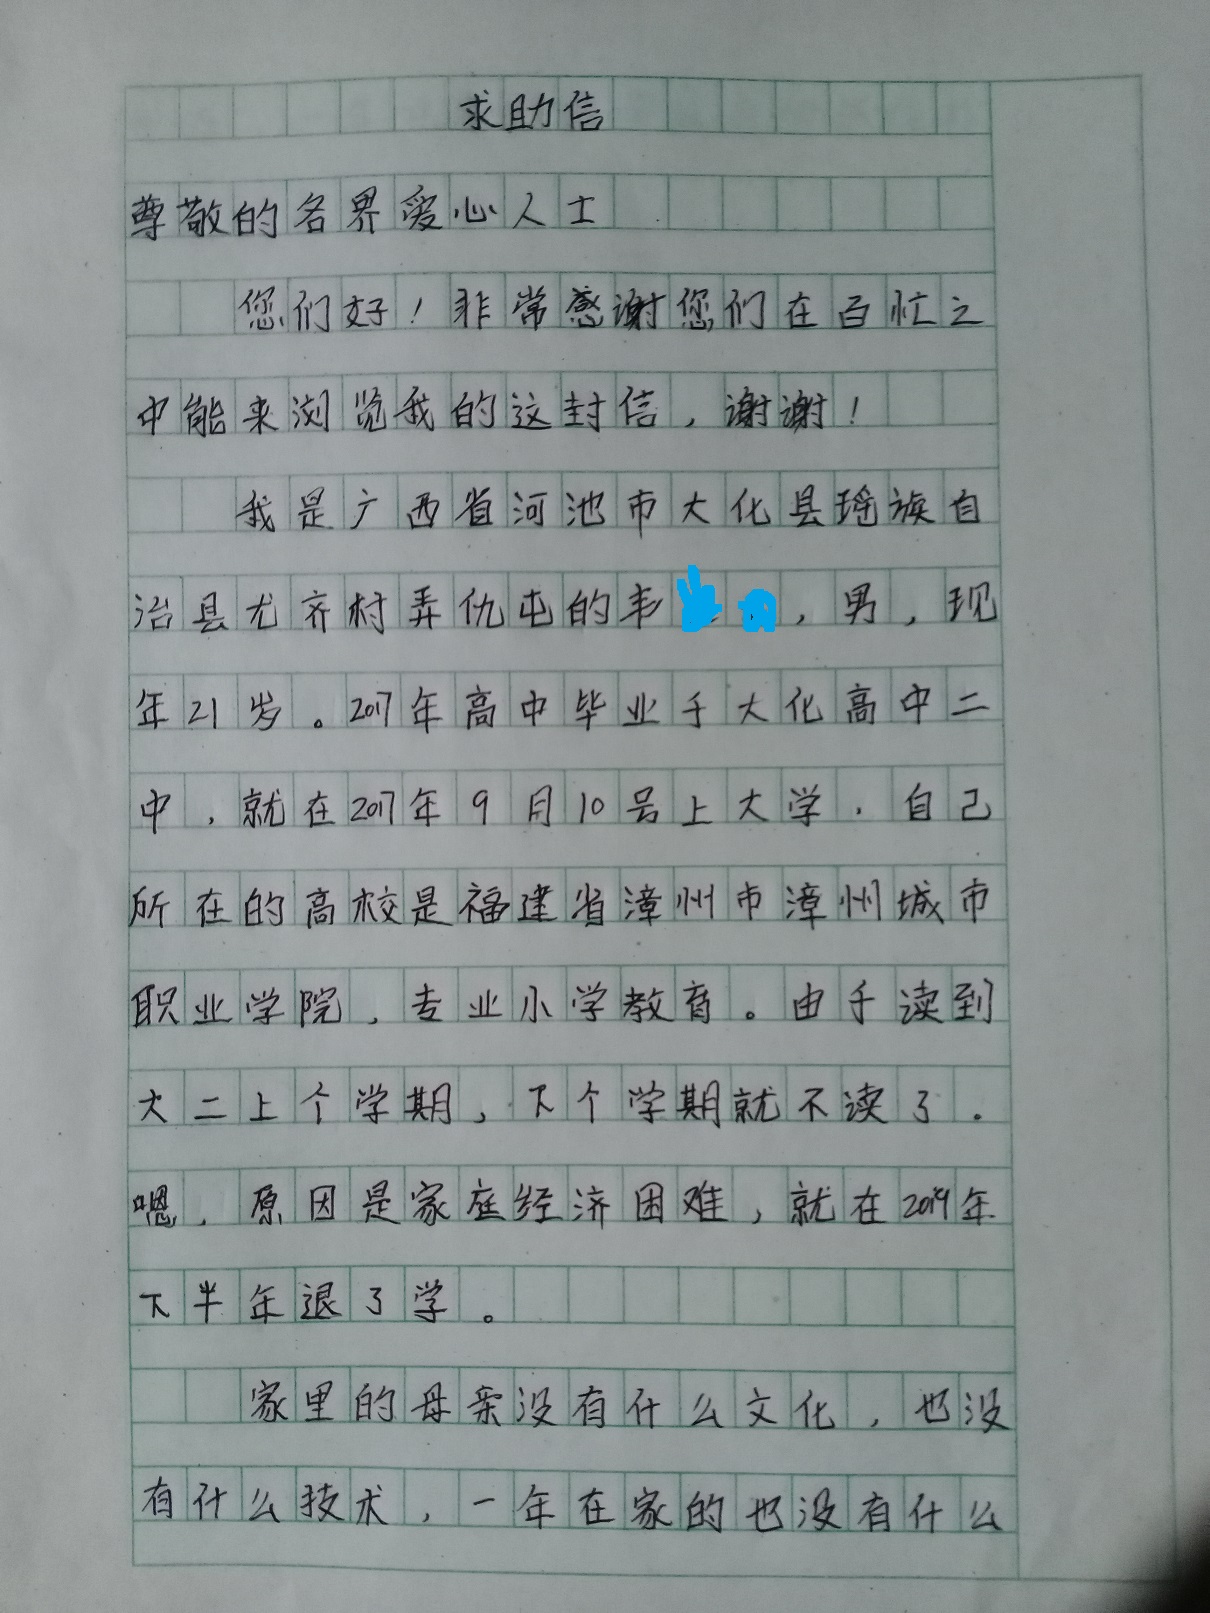 求助信
尊敬的各界爱心人士
您们好！非常感谢您们在百忙之
中能来浏览我的这封信，谢谢！
我是广西省河池市大化县瑶族自
治县尤齐村弄仇屯的韦，男，现
年21岁。2017年高中毕业于大化高中二
中，就在2017年9月10号上大学．自己
所在的高校是福建省漳州市漳州城市
职业学院，专业小学教育。由于读到
大二上个学期，下个学期就不读了．
嗯，原因是家庭经济困难，就在2019年
下半年退了学。
家里的母亲没有什么文化，也没
有什么技术，一年在家的也没有什么